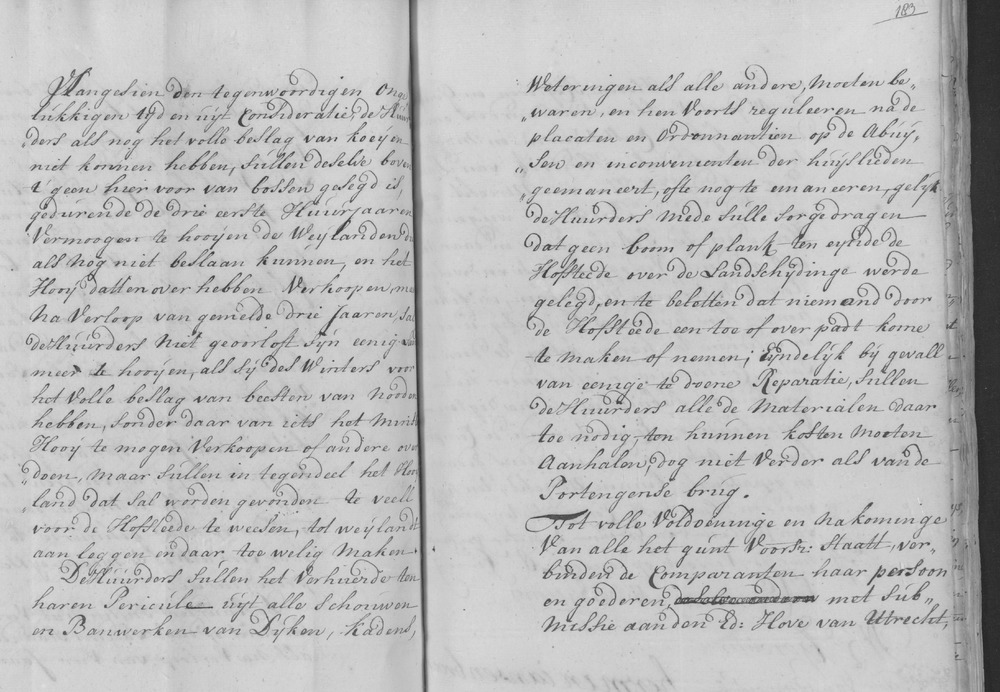 Aangesien den tegenwoordigen onge
lukkigen tyd en uyt Consideratie, de Huur
ders als nog het volle beslag van koeyen
niet konnen hebben, sullen deselve boven
't geen hier voor van bossen gesegd is,
gedurende de drie eerste Huurjaaren
Vermoogen te hooyen de Weylanden d
als nog niet beslaan kunnen, en het
Hooy datt en over hebben Verkoopen, m
na Verloop van gemelde drie jaaren, sal
de Huurders niet geoorloft syn eenig
meer te hooyen, als sy des Winters voor
het Volle beslag van beesten van Nooden
hebben, sonder daar van iets het minste
Hooy te mogen Verkoopen of andere over
doen, maar sullen in tegendeel het
land dat sal worden gevonden te veell
voor de Hofsteede te weesen, tot weyland
aan leggen en daar toe welig maken
De Huurders sullen het Verhuurde ten
haren Pericule uyt alle schouwen
en Banwerken van Dyken, Kadens,
183
Weteringen als alle andere, moeten be-
"waren, en hen Voorts reguleeren na de
placaten en Ordonnansien op de Abuy-
"sen en inconvenienten der huyslieden
"geemaneert, ofte nog te emaneeren, gelyk
de Huurders mede sulle sorgedragen
dat geen boom of plank ten eynde de
Hofstede over de Landschydinge werde
gelegd, en te beletten dat niemand door
de Hofsteede een toe of over padt kome
te maken of nemen; Eyndelyk by gevall
van eenige te doene Reparatie, sullen
de Huurders alle de Materialen daar
toe nodig, ten hunnen kosten moeten
Aanhalen, dog niet Verder als van de
Portengense brug.
Tot volle Voldoeninge en nakominge
Van alle het gunt Voorsz: Staatt, ver-
binden de Comparanten haar persoon
en goederen, met sub-
missie aan den Ed: Hove van Utrecht,